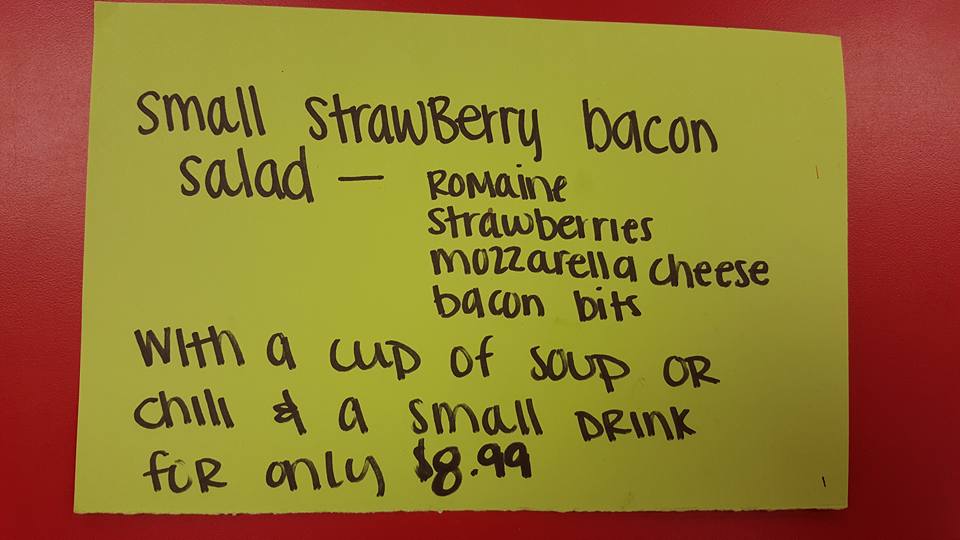 small strawBerry bacon
salad — ROMaine
strawberries
mozzarella cheese
bacon bits
With a cup of soup OR
chili & a small DRINK
foR only $8.99